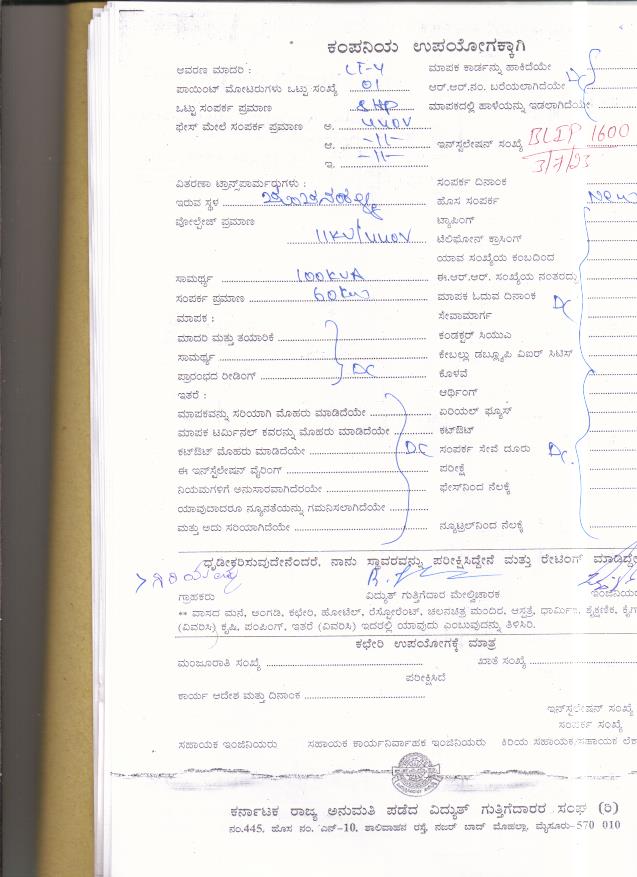 ಕಂಪನಿಯ ಉಪಯೋಗಕ್ಕಾಗಿ
ಆವರಣ ಮಾದರಿ : LT-4 ಮಾಪಕ ಕಾರ್ಡನ್ನು ಹಾಕಿದೆಯೇ
ಪಾಯಿಂಟ್ ಮೋಟರುಗಳು ಒಟ್ಟು ಸಂಖ್ಯೆ 01 ಆರ್.ಆರ್.ನಂ. ಬರೆಯಲಾಗಿದೆಯೇ DC
ಒಟ್ಟು ಸಂಪರ್ಕ ಪ್ರಮಾಣ 5HP ಮಾಪಕದಲ್ಲಿ ಹಾಳೆಯನ್ನು ಇಡಲಾಗಿದೆಯೇ
ಫೇಸ್ ಮೇಲೆ ಸಂಪರ್ಕ ಪ್ರಮಾಣ ಅ. 440V
ಆ. -11- ಇನ್‌ಸ್ಟಲೇಷನ್ ಸಂಖ್ಯೆ BLIP 1600
ಇ. -11- 3/7/03
ವಿತರಣಾ ಟ್ರಾನ್ಸ್‌ಪಾರ್ಮರುಗಳು : ಸಂಪರ್ಕ ದಿನಾಂಕ
ಇರುವ ಸ್ಥಳ ಹೊಸ ಸಂಪರ್ಕ New
ವೋಲ್ಟೇಜ್ ಪ್ರಮಾಣ ಟ್ಯಾಪಿಂಗ್
11KV/440V ಟೆಲಿಫೋನ್ ಕ್ರಾಸಿಂಗ್
ಯಾವ ಸಂಖ್ಯೆಯ ಕಂಬದಿಂದ
ಸಾಮರ್ಥ್ಯ 100KVA ಈ.ಆರ್.ಆರ್. ಸಂಖ್ಯೆಯ ನಂತರದ್ದು
ಸಂಪರ್ಕ ಪ್ರಮಾಣ 60KW ಮಾಪಕ ಓದುವ ದಿನಾಂಕ DC
ಮಾಪಕ : ಸೇವಾಮಾರ್ಗ
ಮಾದರಿ ಮತ್ತು ತಯಾರಿಕೆ ಕಂಡಕ್ಟರ್ ಸಿಯುಎ
ಸಾಮರ್ಥ್ಯ ಕೇಬಲ್ಲು ಡಬ್ಲ್ಯೂಪಿ ಎಐರ್ ಸಿಟಿಸ್
ಪ್ರಾರಂಭದ ರೀಡಿಂಗ್ DC ಕೊಳವೆ
ಇತರೆ : ಆರ್ಥಿಂಗ್
ಮಾಪಕವನ್ನು ಸರಿಯಾಗಿ ಮೊಹರು ಮಾಡಿದೆಯೇ ಏರಿಯಲ್ ಫ್ಯೂಸ್
ಮಾಪಕ ಟರ್ಮಿನಲ್ ಕವರನ್ನು ಮೊಹರು ಮಾಡಿದೆಯೇ ಕಟ್‌ಔಟ್
ಕಟ್‌ಔಟ್ ಮೊಹರು ಮಾಡಿದೆಯೇ DC ಸಂಪರ್ಕ ಸೇವೆ ದೂರು DC.
ಈ ಇನ್‌ಸ್ಟಲೇಷನ್ ವೈರಿಂಗ್ ಪರೀಕ್ಷೆ
ನಿಯಮಗಳಿಗೆ ಅನುಸಾರವಾಗಿದೆರಯೇ ಫೇಸ್‌ನಿಂದ ನೆಲಕ್ಕೆ
ಯಾವುದಾದರೂ ನ್ಯೂನತೆಯನ್ನು ಗಮನಿಸಲಾಗಿದೆಯೇ
ಮತ್ತು ಅದು ಸರಿಯಾಗಿದೆಯೇ ನ್ಯೂಟ್ರಲ್‌ನಿಂದ ನೆಲಕ್ಕೆ
ಧೃಡೀಕರಿಸುವುದೇನೆಂದರೆ, ನಾನು ಸ್ಥಾವರವನ್ನು ಪರೀಕ್ಷಿಸಿದ್ದೇನೆ ಮತ್ತು ರೇಟಿಂಗ್ ಮಾಡಿದ್ದೇ
ಗ್ರಾಹಕರು ವಿದ್ಯುತ್ ಗುತ್ತಿಗೆದಾರ ಮೇಲ್ವಿಚಾರಕ ಇಂಜಿನಿಯ
** ವಾಸದ ಮನೆ, ಅಂಗಡಿ, ಕಛೇರಿ, ಹೋಟೆಲ್, ರೆಸ್ಟೋರೆಂಟ್, ಚಲನಚಿತ್ರ ಮಂದಿರ, ಆಸ್ಪತ್ರೆ, ಧಾರ್ಮಿಕ, ಶೈಕ್ಷಣಿಕ, ಕೈಗ
(ವಿವರಿಸಿ) ಕೃಷಿ, ಪಂಪಿಂಗ್, ಇತರೆ (ವಿವರಿಸಿ) ಇದರಲ್ಲಿ ಯಾವುದು ಎಂಬುವುದನ್ನು ತಿಳಿಸಿರಿ.
ಕಛೇರಿ ಉಪಯೋಗಕ್ಕೆ ಮಾತ್ರ
ಮಂಜೂರಾತಿ ಸಂಖ್ಯೆ ಖಾತೆ ಸಂಖ್ಯೆ
ಪರೀಕ್ಷಿಸಿದೆ
ಕಾರ್ಯ ಆದೇಶ ಮತ್ತು ದಿನಾಂಕ
ಇನ್‌ಸ್ಟಲೇಷನ್ ಸಂಖ್ಯೆ
ಸಂಪರ್ಕ ಸಂಖ್ಯೆ
ಸಹಾಯಕ ಇಂಜಿನಿಯರು ಸಹಾಯಕ ಕಾರ್ಯನಿರ್ವಾಹಕ ಇಂಜಿನಿಯರು ಕಿರಿಯ ಸಹಾಯಕ/ಸಹಾಯಕ ಲೆಕ
ಕರ್ನಾಟಕ ರಾಜ್ಯ ಅನುಮತಿ ಪಡೆದ ವಿದ್ಯುತ್ ಗುತ್ತಿಗೆದಾರರ ಸಂಘ (ರಿ)
ನಂ.445, ಹೊಸ ನಂ. ಎನ್-10, ಶಾಲಿವಾಹನ ರಸ್ತೆ, ನಜರ್ ಬಾದ್ ಮೊಹಲ್ಲಾ, ಮೈಸೂರು-570 010